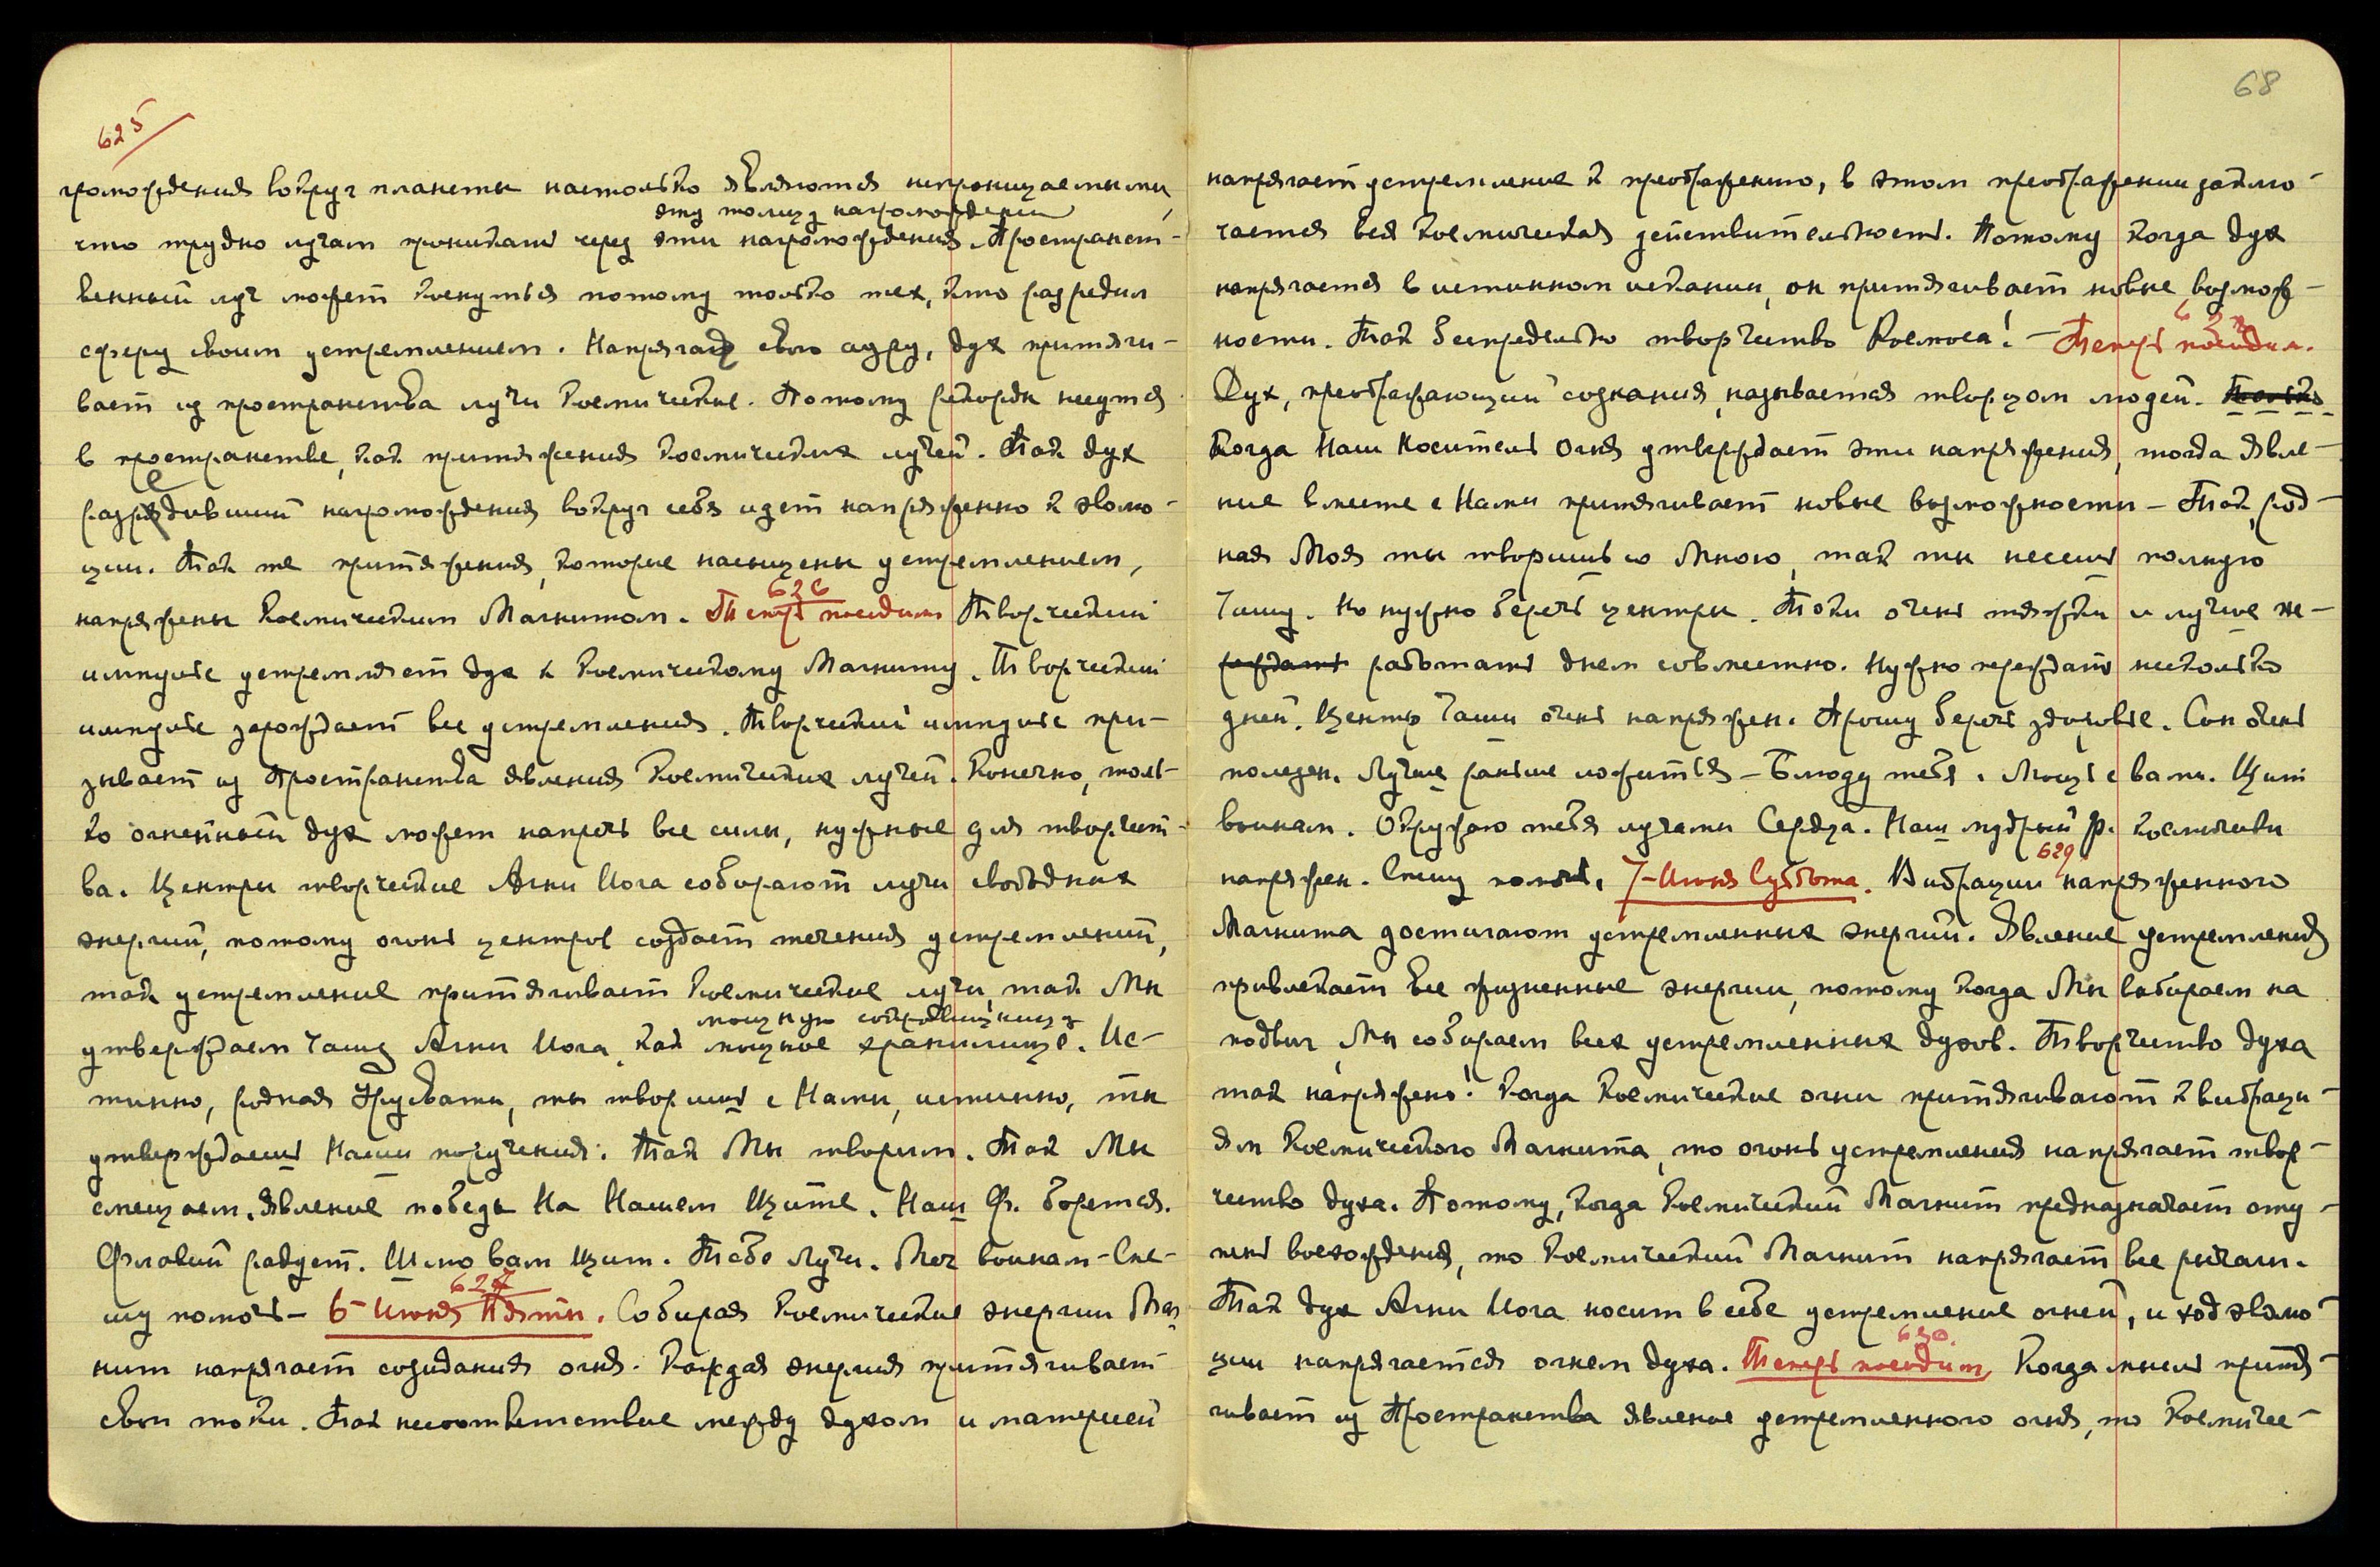 625
громождения вокруг планеты настолько являются непроницаемыми,
эту толщу нагромождений
что трудно лучам проникать через эти нагромождения. Пространст-
венный луч может коснуться потому только тех, кто разредил
сферу своим устремлением. Напрягая свою ауру, дух притяги-
вает из пространства лучи космические. Потому рекорды несутся
в пространстве, как притяжения космических лучей. Так дух
разредивший нагромождения вокруг себя идет напряженно к эволю-
ции. Так те притяжения, которые насыщены устремлением,
626
напряжены Космическим Магнитом. Теперь последим Творческий
импульс устремляет дух к Космическому Магниту. Творческий
импульс зарождает все устремления. Творческий импульс при-
зывает из Пространства явления Космических лучей. Конечно, толь-
ко огненный дух может напречь все силы, нужные для творчест-
ва. Центры творческие Агни Йога собирают лучи свободных
энергий, потому огонь центров создает течения устремлений,
так устремление притягивает Космические лучи, так Мы
мощную сокровищницу
утверждаем Чашу Агни Йога, как мощное хранилище. Ис-
тинно, родная Урусвати, ты творишь с Нами, истинно, ты
утверждаешь Наши поручения. Так Мы творим. Так Мы
смещаем. Явление победы На Нашем Щите. Наш Ф. борется.
Флавий радует. Шлю вам Щит. Тебе Лучи. Меч воинам – Спе-
627
шу помочь – 6– Июня Пятн. Собирая Космические энергии Маг
нит напрягает созидания огня. Каждая энергия притягивает
свои токи. Так несоответствие между духом и материей
68
напрягает устремление к преображению, в этом преображении заклю-
чается вся Космическая действительность. Потому когда дух
напрягается в истинном искании, он притягивает новые возмож-
628
ности. Так беспредельно творчество Космоса! – Теперь последим.
Дух, преображающий сознания, называется творцом людей.
Когда Наш Носитель Огня утверждает эти напряжения, тогда явле-
ние вместе с Нами притягивает новые возможности – Так, род-
ная Моя ты творишь со Мною, так ты несешь полную
Чашу. Но нужно беречь центры. Токи очень тяжки и лучше не-
работать днем совместно. Нужно переждать несколько
дней. Центр Чаши очень напряжен. Прошу беречь здоровье. Сон очень
полезен. Лучше раньше ложиться – Блюду тебя. Мощь с вами. Щит
воинам. Окружаю тебя лучами Сердца. Наш мудрый Ф. космически
629
напряжен. Спешу помочь. 7–Июня Суббота. Вибрации напряженного
Магнита достигают устремленных энергий. Явление устремления
привлекает все жизненные энергии, потому когда Мы собираем на
подвиг, Мы собираем всех устремленных духов. Творчество духа
так напряжено! Когда Космические огни притягивают к вибраци-
ям Космического Магнита, то огонь устремления напрягает твор-
чество духа. Потому, когда Космический Магнит предназначает сту-
пень восхождения, то Космический Магнит напрягает все рычаги.
Так дух Агни Йога носит в себе устремление огней, и ход эволю-
630.
ции напрягается огнем духа. Теперь последим, Когда мысль притя-
гивает из Пространства явление устремленного огня, то Космиче-